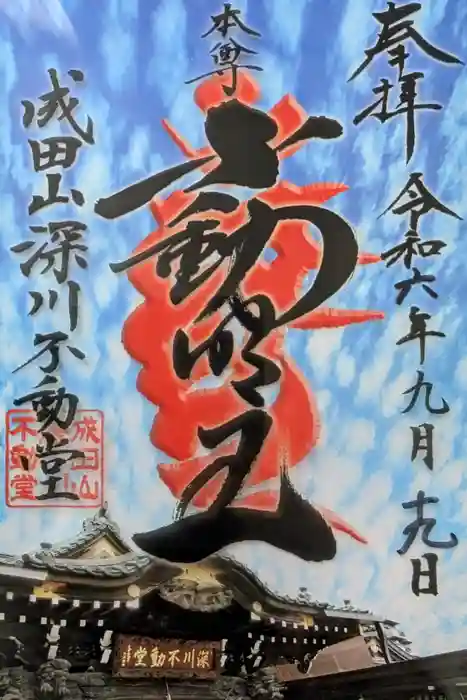 奉拝
令和六年九月十九日
本尊
不動明王
成田山深川不動堂
成田山
不動堂
深川不動堂